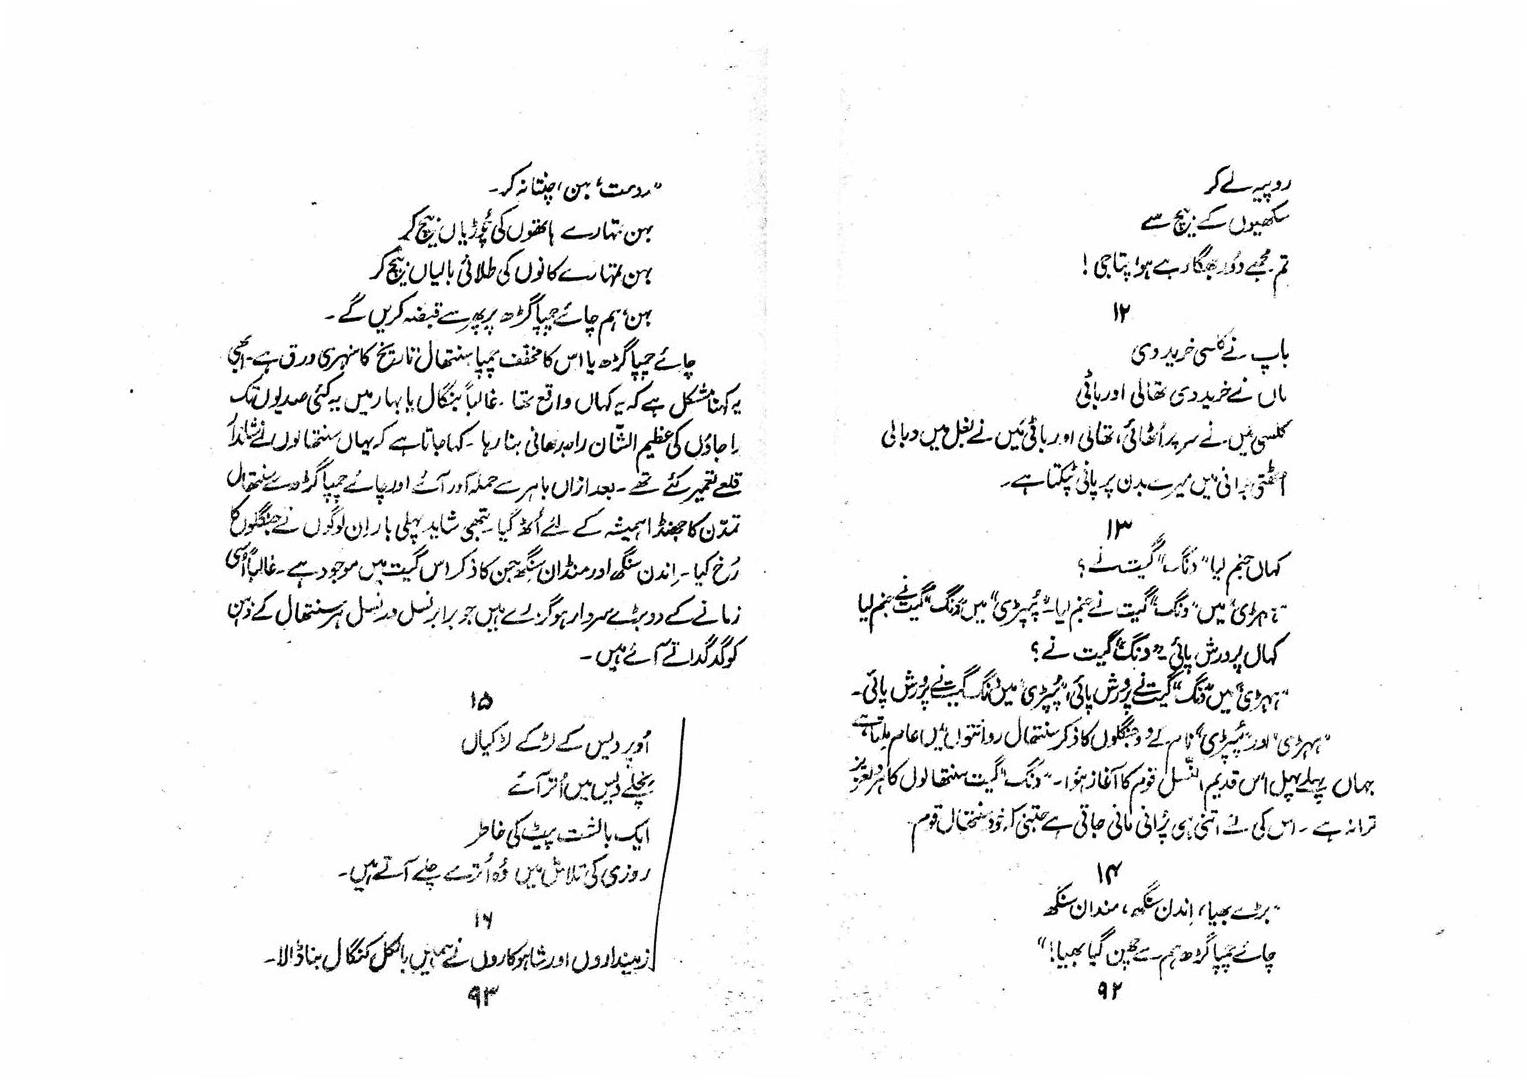 روپیہ لے کر
سکھیوں کے بیچ سے
تم مجھے دُور بھگا رہے ہو، پتا جی!
۱۲
باپ نے کلسی خرید دی
ماں نے خرید دی تھالی اور باٹی
کلسی مَیں نے سر پر اُٹھائی، تھالی اور باٹی مَیں نے بغل میں دبا لی
اٹھتی جوانی میں میرے بدن پر پانی ٹپکتا ہے۔
۱۳
کہاں جنم لیا "دنگ" گیت نے؟
"ہہڑی" میں "دنگ" گیت نے جنم لیا۔ "پپڑی" میں "دنگ" گیت نے جنم لیا
کہاں پرورش پائی "دنگ" گیت نے؟
"ہہڑی" میں "دنگ" گیت نے پرورش پائی، "پپڑی" میں دنگ گیت نے پرورش پائی۔
"ہہڑی" اور "پپڑی" نام کے دو جنگلوں کا ذکر سنتھال روائتوں میں عام ملتا ہے
جہاں پہلے پہل اس قدیم النّسل قوم کا آغاز ہوا۔ "دنگ" گیت سنتھالوں کا ہر دلعزیز
ترانہ ہے۔ اس کی لَے اتنی ہی پُرانی مانی جاتی ہے جتنی کہ خود سنتھال قوم
۱۴
"بڑے بھیا، اِندن سنگھ، مندان سنگھ
چائے چمپا گڑھ ہم سے چھن گیا بھیا!"
۹۲
"رو مت، بہن، چنتا نہ کر۔
بہن تمہارے ہاتھوں کی چُوڑیاں بیچ کر
بہن تمہارے کانوں کی طلائی بالیاں بیچ کر
بہن، ہم چائے چمپا گڑھ پر پھر سے قبضہ کریں گے۔
چائے چمپا گڑھ یا اس کا مخفف چمپا سنتھال تاریخ کا سنہری ورق ہے۔ ابھی
یہ کہنا مشکل ہے کہ یہ کہاں واقع تھا۔ غالباً بنگال یا بہار میں یہ کئی صدیوں تک
راجاؤں کی عظیم الشّان راجدھانی بنا رہا۔ کہا جاتا ہے کہ یہاں سنتھالوں نے شاندار
قلعے تعمیر کئے تھے۔ بعد ازاں باہر سے حملہ آور آئے اور چائے چمپا گڑھ سے سنتھال
تمدّن کا جھنڈا ہمیشہ کے لئے اُکھڑ گیا تبھی شاید پہلی بار اِن لوگوں نے جنگلوں کا
رُخ کیا۔ اِندن سنگھ اور منڈان سنگھ جن کا ذکر اس گیت میں موجود ہے۔ غالباً اُسی
زمانے کے دو بڑے سردار ہو گزرے ہیں جو برابر نسل در نسل ہر سنتھال کے ذہن
کو گدگداتے آئے ہیں۔
۱۵
اُوپر دیس کے لڑکے لڑکیاں
نچلے دیس میں اُتر آئے
ایک بالشت پیٹ کی خاطر
روزی کی تلاش میں وُہ اُترے چلے آتے ہیں۔
۱۶
زمینداروں اور شاہوکاروں نے ہمیں بالکل کنگال بنا ڈالا۔
۹۳